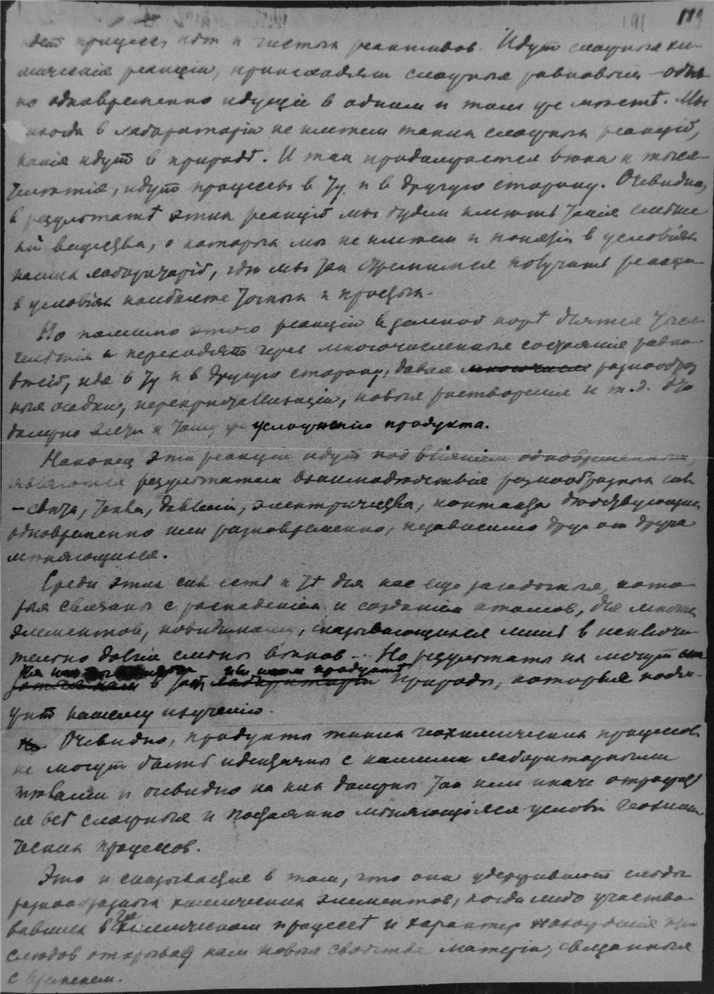 189
дѣт процессъ идт и чистыхъ реактивов. Идут сложныя хи-
мическія реакціи, происходят сложныя равновѣсія — одна-
ко одновременно идущія в одном и том же мѣстѣ. Мы
никогда в лабораторіи не имѣем таких сложных реакцій,
какія идут в природѣ. И так продолжается вѣка и тыся-
челѣтія, идут процессы в ту и в другую сторону. Очевидно,
в результатѣ этих реакцій мы будем имѣть такія смѣше-
нія вещества, о которых мы не имѣем и понятія в условіях
наших лабораторій, гдѣ мы так стремимся получить реакціи
в условіях наиболѣе точных и простых.
Но помимо этого реакціи в земной корѣ длятся тыся-
челѣтія и переходят через многочисленныя состоянія равно-
вѣсій, идя в ту и в другую сторону, давая разнообраз
ные осадки, перекристаллизаціи, новыя растворенія и т.д. Это
должно вести к тому же усложненію продукта.
Наконец эти реакціи идут под вліяніем одновременным,
являются результатом взаимодѣйствія разнообразных сил
— свѣта, тепла, давленія, электричества, контакта дѣйствующих
одновременно или разновременно, независимо друг от друга
мѣняющихся.
Среди этих сил есть и тѣ для нас еще загадочныя, кото-
рыя связаны с распаденіем и созданіем атомов, для многих
элементов, повидимому, сказывающихся лишь в исключи-
тельно долгіе смѣны вѣков... Но результаты их могут
в тѣх природы, которые подле-
жит нашему изученію.
Очевидно, продукты таких геохимических процессов
не могут быть идентичны с нашими лабораторными
тѣлами и очевидно на них должны так или иначе отражать
ся всѣ сложныя и постоянно мѣняющіяся условія геохими-
ческих процессов.
Это и сказывается в том, что они удерживают слѣды
разнообразных химических элементов, когда либо участво-
вавших в химическом процессѣ и характер нахожденія
слѣдов открывает нам новыя свойства матеріи, связанныя
с временем.